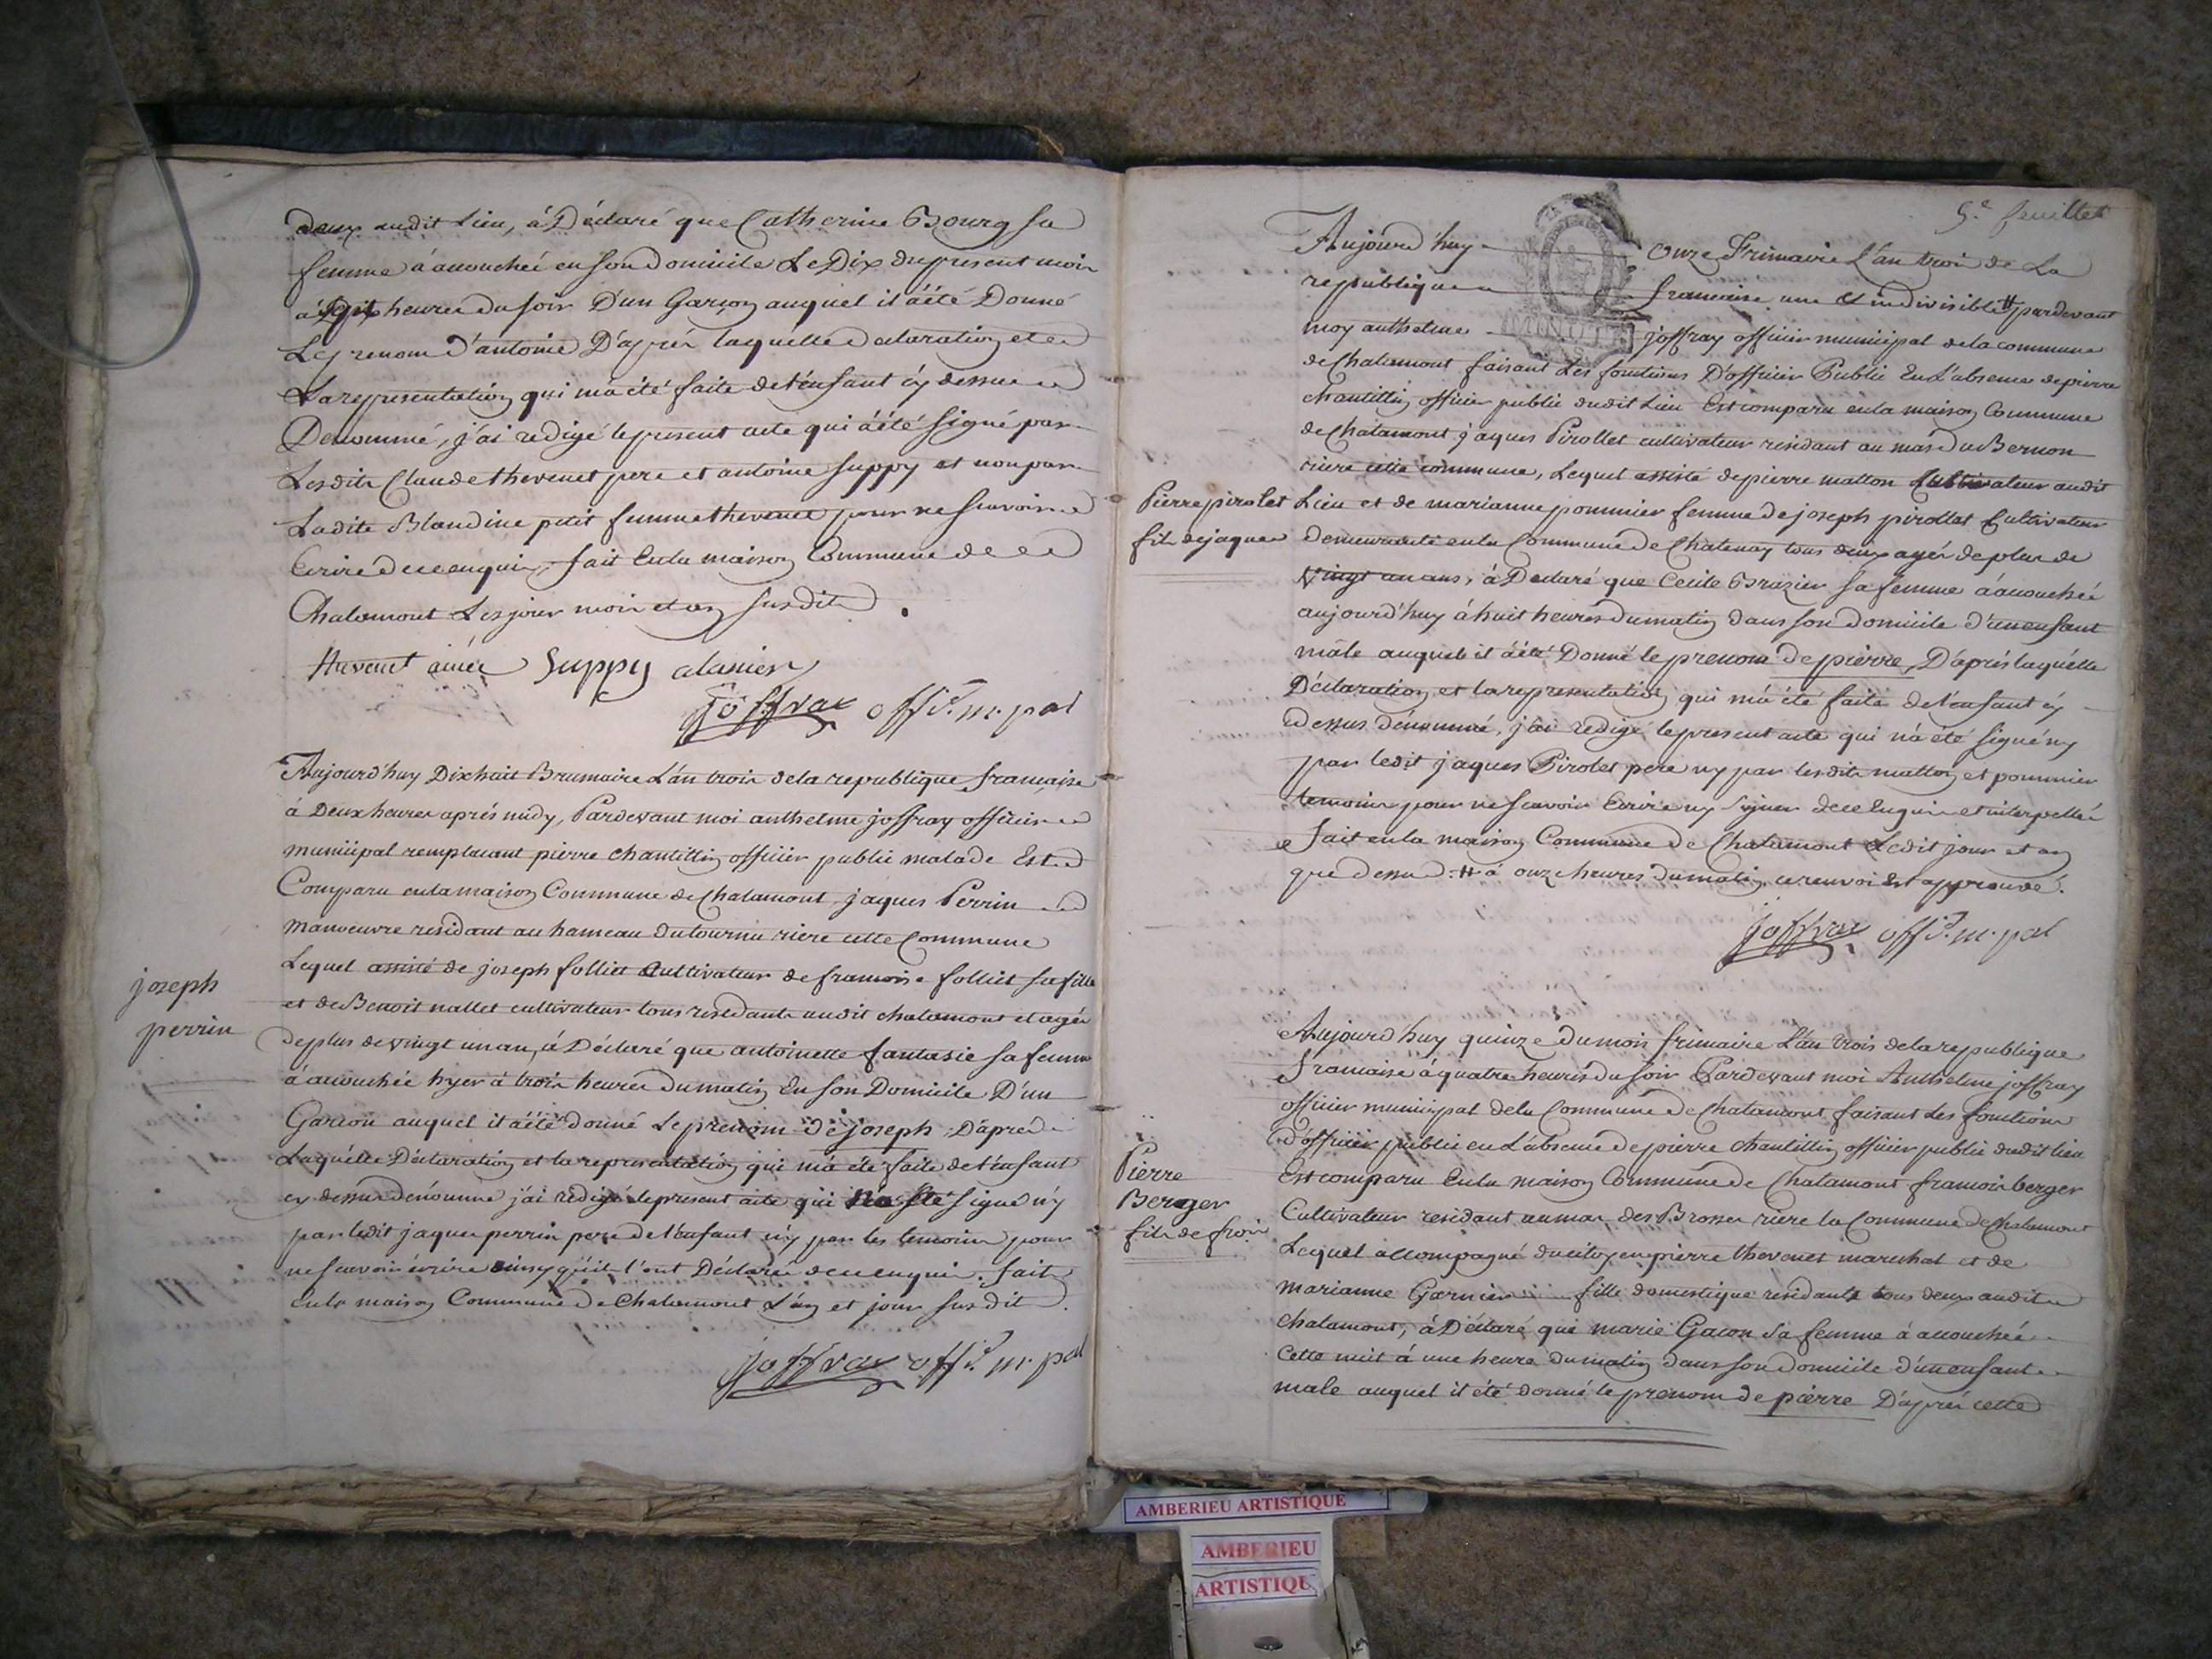 deux audit Lieu, à Déclaré que Catherine Bourg sa
femme à accouchée en son domicile Le Dix du present mois
à Sept heures du soir D'un Garçon auquel il à été Donné
Le prenom d'antoine D'aprés laquelle declaration et
La representation qui m'a été faite de l'enfant cy dessus
Denommé, j'ai redigé le present acte qui à été signé par
Lesdits Claude thevenet pere et antoine suppy et non par
Ladite Blandine petit femme thevenet pour ne scavoir
Ecrire de ce enquis, fait En la maison Commune de
Chalamont Les jour mois et an susdits.
thevenet ainée Suppy
Joffray offi.r m.pal
Aujourd'huy Dixhuit Brumaire L'an trois de la republique francaise
à Deux heures aprés midy, Pardevant moi anthelme joffray officier
municipal remplacant pierre chantillin officier public malade Est
Comparu en la maison Commune de Chalamont jaques Perrin
manoeuvre residant au hameau du tournu riere cette Commune
Lequel assisté de joseph folliet Cultivateur de francoise folliet sa fille
et de Benoit mallet cultivateur tous residants audit chalamont et agés
de plus de vingt un an, à Déclaré que antoinette fantasie sa femme
à accouchée hyer à trois heures du matin En son Domicile D'un
Garcon auquel il à été donné Le prenom de joseph, D'aprés
Laquelle Déclaration et la representation qui m'a été faite de l'enfant
cy dessus denommé j'ai redigé le present acte qui n'a été signé n'y
par ledit jaques perrin pere de l'enfant n'y par les temoins pour
ne scavoir écrire ainsy qu'il l'ont Déclaré de ce enquis. fait
en la maison Commune de Chalamont L'an et jour susdit.
joseph
perrin
joffray offi.r m.pal
5.e feuillet
Aujourd'huy onze Frimaire L'an trois de La
republique francaise une et indivisible # pardevant
moy anthelme joffray officier municipal de la commune
MINUTE
de Chalamont faisant Les fonctions D'officier Public En L'absence de pierre
chantillin officier public dudit Lieu Est comparu en la maison Commune
de Chalamont jaques Pirollet cultivateur residant au mas du Bernon
riere cette commune, Lequel assisté de pierre matton Cultivateur audit
Lieu et de marianne pommier femme de joseph pirollet Cultivateur
demeurants en la Commune de Chatenay tous deux agés de plus de
vingt un ans, à Declaré que Cecile Brazier sa femme à accouchée
aujourd'huy à huit heures du matin dans son domicile d'un enfant
mâle auquel il à été Donné le prenom de pierre, D'aprés laquelle
Déclaration et la representation qui m'a été faite de l'enfant cy
dessus dénommé, j'ai redigé le present acte qui n'a été signé ny
par ledit jaques Pirolet pere ny par lesdits matton et pommier
temoins pour ne scavoir Ecrire ny signer de ce Enquis et interpellés
fait en la maison Commune de Chalamont Ledit jour et an
que dessus. # à onze heures du matin ce renvoi Est approuvé.
Pierre pirolet
fils de jaques
joffray offi.r m.pal
Aujourd'huy quinze du mois frimaire L'an trois de la republique
francaise à quatre heures du soir Pardevant moi Anthelme joffray
officier municipal de la Commune de Chalamont faisant Les fonctions
d'officier public en L'absence de pierre chantillin officier public dudit lieu
Est comparu En la maison Commune de Chalamont francois berger
Cultivateur residant au mas des Brosses riere la Commune de Chalamont
Lequel accompagné du citoyen pierre thevenet marechal et de
marianne Garnier fille domestique residants tous deux audit
chalamont, à Déclaré que marie Gacon sa femme à accouchée
cette nuit à une heure du matin dans son domicile d'un enfant
male auquel il été donné le prenom de pierre D'aprés cette
Pierre
Berger
fils de frois
AMBERIEU ARTISTIQUE
AMBERIEU
ARTISTIQU